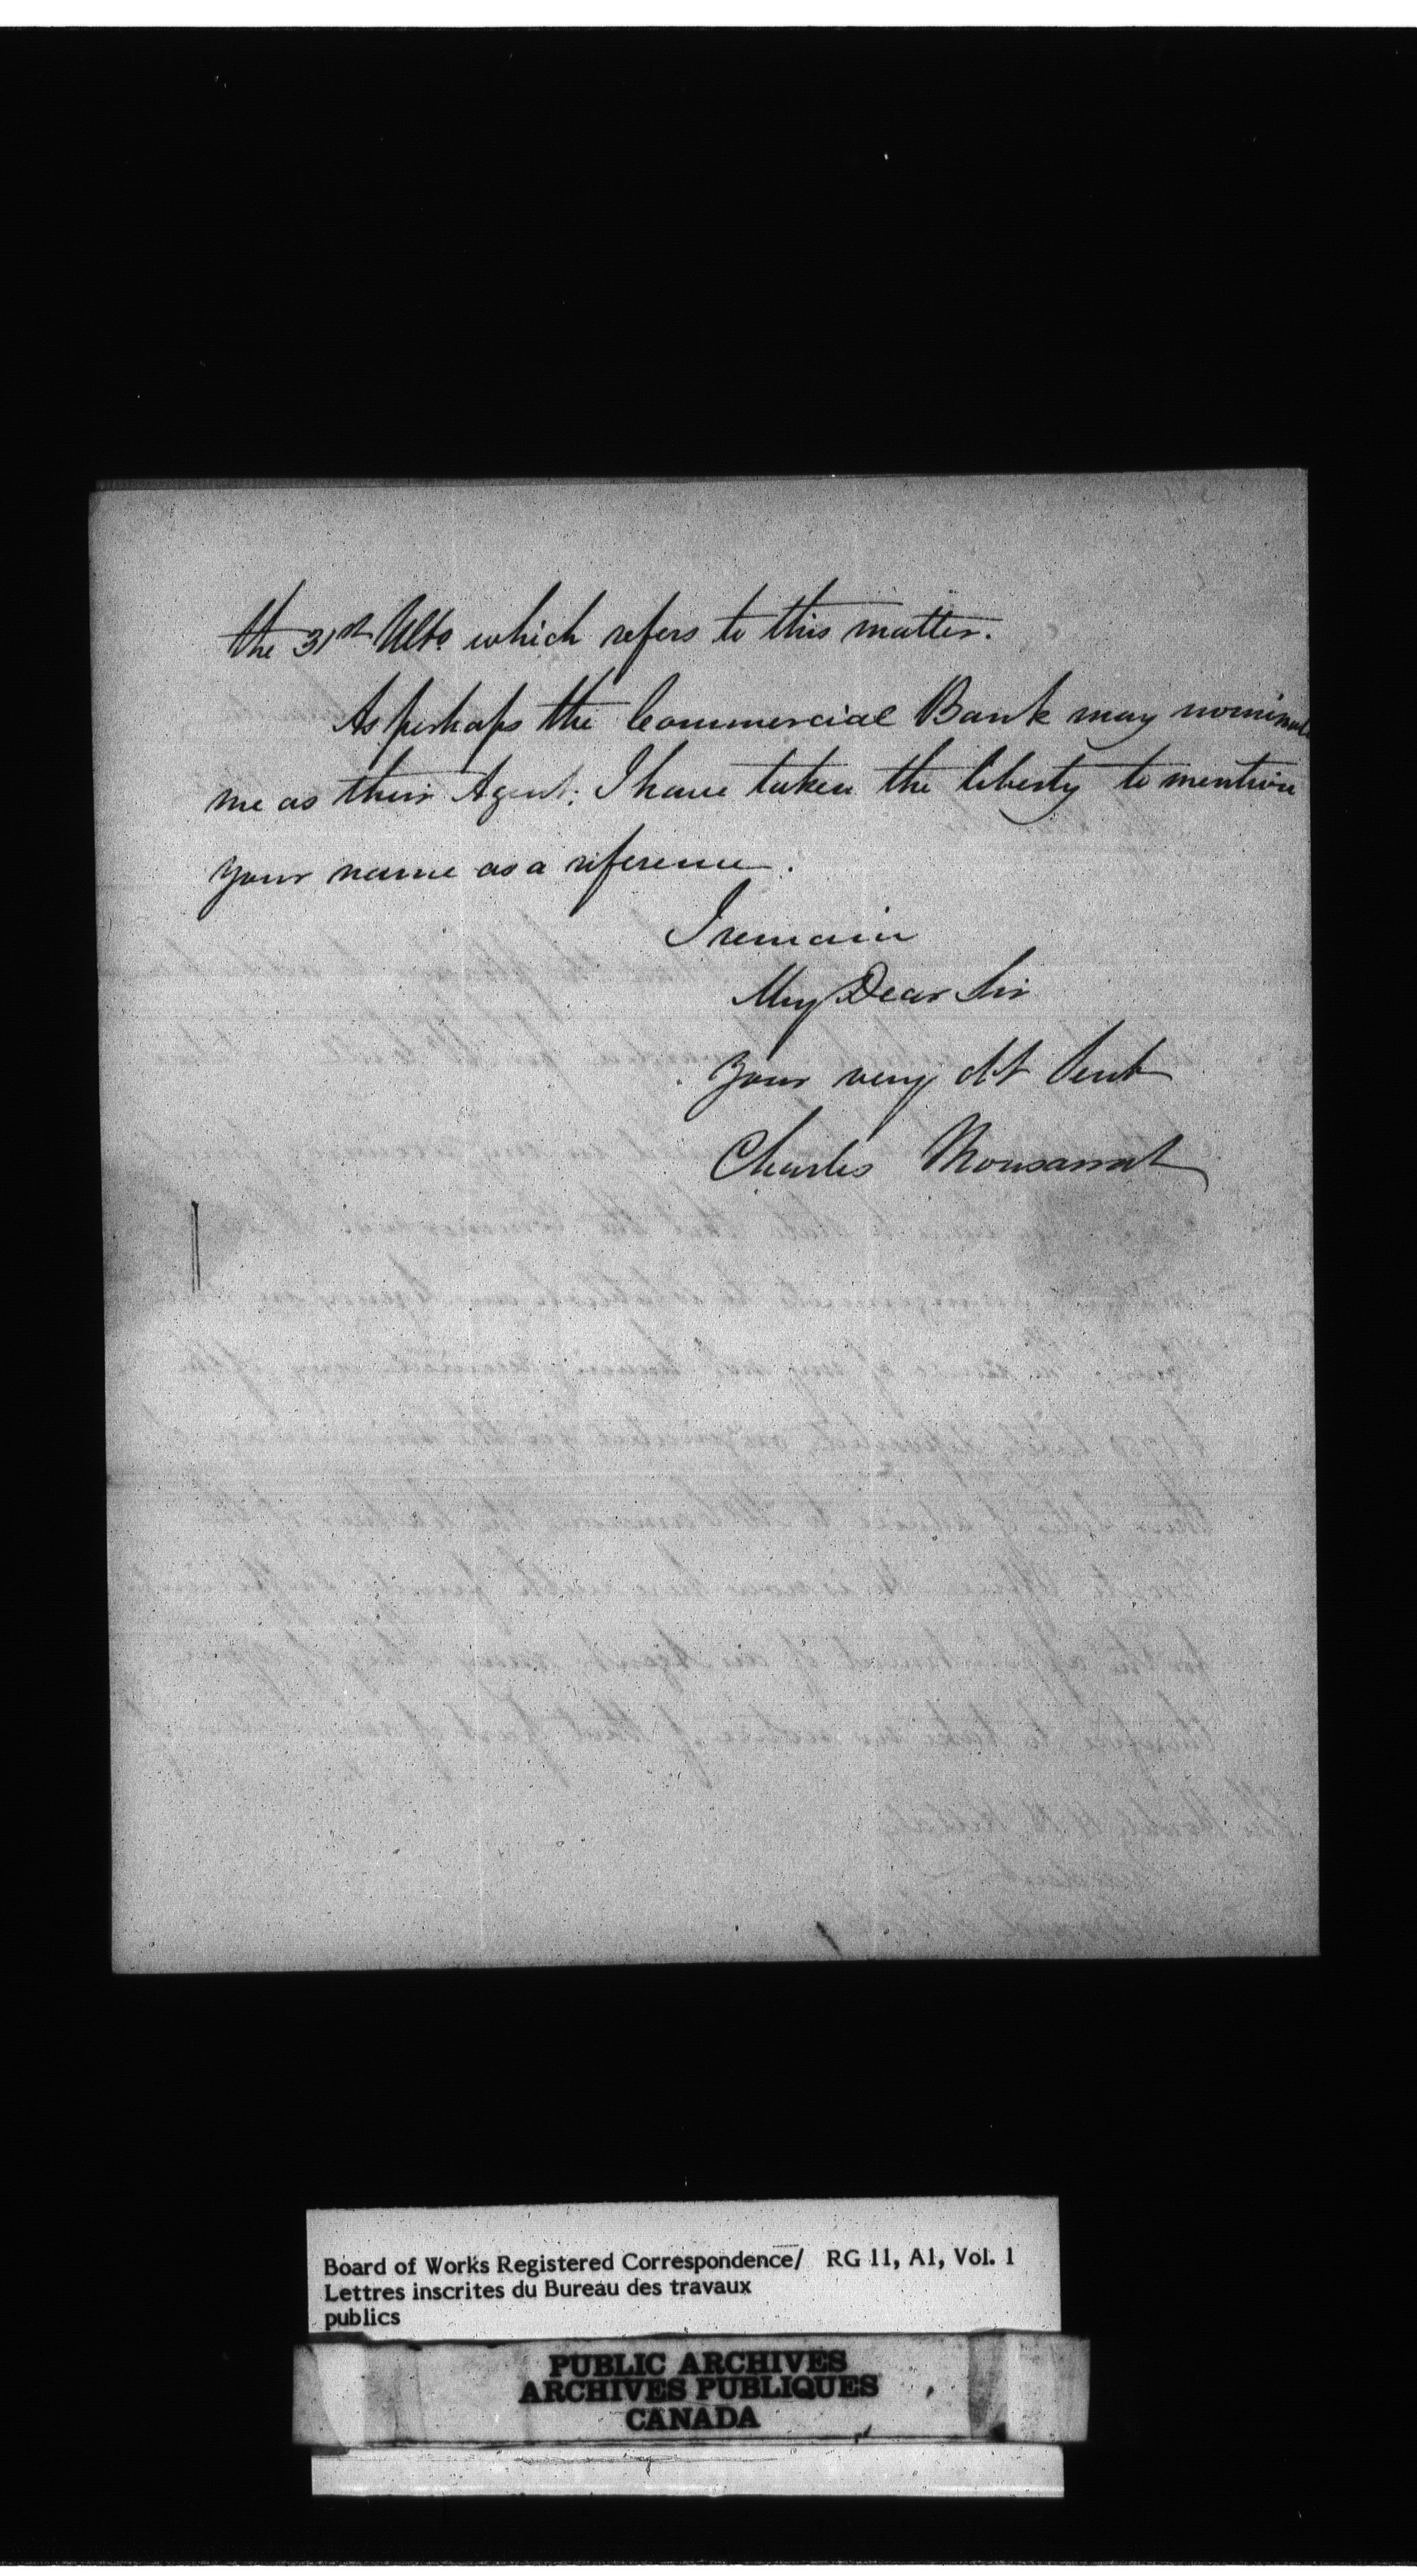 the 31st Ulto. which refers to this matter.
As perhaps the Commercial Bank may nominate
me as their Agent; I have taken the liberty to mention
your name as a reference.
I remain
My Dear Sir
Your very obt Servt
Charles Monsarrat
Board of Works Registered Correspondence/ RG 11, A1, Vol. 1
Lettres inscrites du Bureau des travaux
publics
PUBLIC ARCHIVES
ARCHIVES PUBLIQUES
CANADA